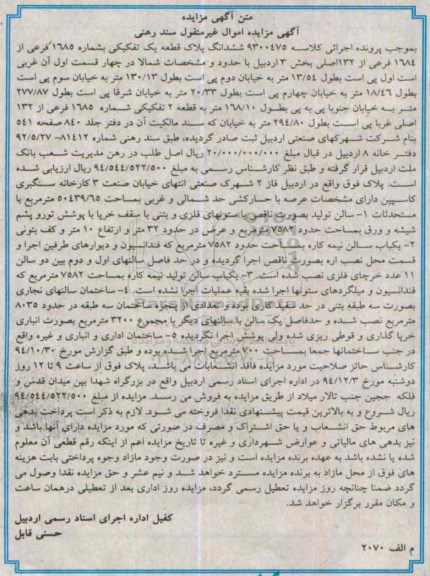 متن آگهی مزایده
آگهی مزایده اموال غیرمنقول سند رهنی
بموجب پرونده اجرائی کلاسه ۹۳۰۰۴۷۵ ششدانگ پلاک قطعه یک تفکیکی بشماره ۱۶۸۵ فرعی از
۱۶۸۴ فرعی از ۱۳۲اصلی بخش ۳ اردبیل با حدود و مشخصات شمالا در چهار قسمت اول آن غربی
است اول پی است بطول ۱۳/۵۴ متر به خیابان دوم پی است بطول ۱۳۰/۱۳ متر به خیابان سوم پی است
بطول ۱۸/۴۶ متر به خیابان چهارم پی است بطول ۲۰/۳۳ متر به خیابان شرقا پی است بطول ۲۷۷/۸۷
متر به خیابان جنوبا پی به پی بطول ۱۶۸/۱۰ متر به قطعه ۲ تفکیکی شماره ۱۶۸۵ فرعی از ۱۳۲
اصلی غربا پی است بطول ۲۹۴/۸۰ متر به خیابان که سند مالکیت آن در دفتر جلد ۸۴۰ صفحه ۵۴۱
بنام شرکت شهرکهای صنعتی اردبیل ثبت صادر گردیده، طبق سند رهنی شماره ۸۱۴۱۲-۹۲/۵/۲۷
دفتر خانه ۸ اردبیل در قبال مبلغ ۲۰/۰۰۰/۰۰۰/۰۰۰ ریال اصل طلب در رهن مدیریت شعب بانک
ملت اردبیل قرار گرفته و طبق نظر کارشناس رسمی به مبلغ ۹۴/۵۴۴/۵۲۲/۵۰۰ ریال ارزیابی شده
است. پلاک فوق واقع در اردبیل فاز ۲ شهرک صنعتی انتهای خیابان صنعت ۳ کارخانه سنگبری
کاسپین دارای مشخصات عرصه با حصارکشی حد شمالی و غربی بمساحت ۵۰۴۳۹/۶۵ مترمربع با
مستحدثات ۱- سالن تولید بصورت ناقص با ستونهای فلزی و بتنی با سقف خرپا با پوشش تورو پشم
شیشه و ورق بمساحت حدود ۷۵۸۲ مترمربع و عرض در حدود ۳۲ متر و ارتفاع ۱۰ متر و کف بتونی
۲- یکباب سالن نیمه کاره بمساحت حدود ۷۵۸۲ مترمربع که فندانسیون و دیوارهای طرفین اجرا و
قسمت محل نصب اره بصورت ناقص اجرا گردیده و در حد فاصل سالنهای اول و دوم بین دو سالن
۱۱ عدد خرجای فلزی نصب شده است. ۳- یکباب سالن تولید نیمه کاره بمساحت ۷۵۸۲ مترمربع که
فندانسیون و میلگردهای ستونها اجرا شده بقیه عملیات اجرا نشده است. ۴- ساختمان سالنهای تجاری
بصورت سه طبقه بتنی در حد سفیدکاری بوده و تعدادی از پنجره ساختمان سه طبقه در حدود ۸۰۳۵
مترمربع نصب شده و حدفاصل یک سالن با سالنهای دیگر با مجموع ۳۲۰۰ مترمربع بصورت انباری
خرپا گذاری و قوطی ریزی شده ولی پوشش اجرا نگردیده ۵- ساختمان اداری و انباری و غیره واقع
در جنب ساختمانها جمعا بمساحت ۷۰۰ مترمربع اجرا شده بوده و طبق گزارش مورخ ۹۴/۱۰/۳۰
کارشناس حائز صلاحیت مورد مزایده فاقد انشعابات می باشد، پلاک فوق از ساعت ۹ تا ۱۲ روز
دوشنبه مورخ ۹۴/۱۲/۳ در اداره اجرای اسناد رسمی اردبیل واقع در بزرگراه شهدا بین میدان قدس و
فلکه ججین جنب تالار میلاد از طریق مزایده به فروش می رسد. مزایده از مبلغ ۹۴/۵۴۴/۵۲۲/۵۰۰
ریال شروع و به بالاترین قیمت پیشنهادی نقدا فروخته می شود. لازم به ذکر است پرداخت بدهی
های مربوط حق انشعاب و یا حق اشتراک و مصرف در صورتی که مورد مزایده دارای آنها باشد و
نیز بدهی های مالیاتی و عوارض شهرداری و غیره تا تاریخ مزایده اعم از اینکه رقم قطعی آن معلوم
شده یا نشده باشد به عهده برنده مزایده است و نیز در صورت وجود مازاد وجوه پرداختی بابت هزینه
های فوق از محل مازاد به برنده مزایده مسترد خواهد شد و نیم عشر و حق مزایده نقدا وصول می
گردد ضمنا چنانچه روز مزایده تعطیل رسمی گردد، مزایده روز اداری بعد از تعطیلی درهمان ساعت
و مکان مقرر برگزار خواهد شد.
کفیل اداره اجرای اسناد رسمی اردبیل
حسنی قابل
م الف ۲۰۷۰